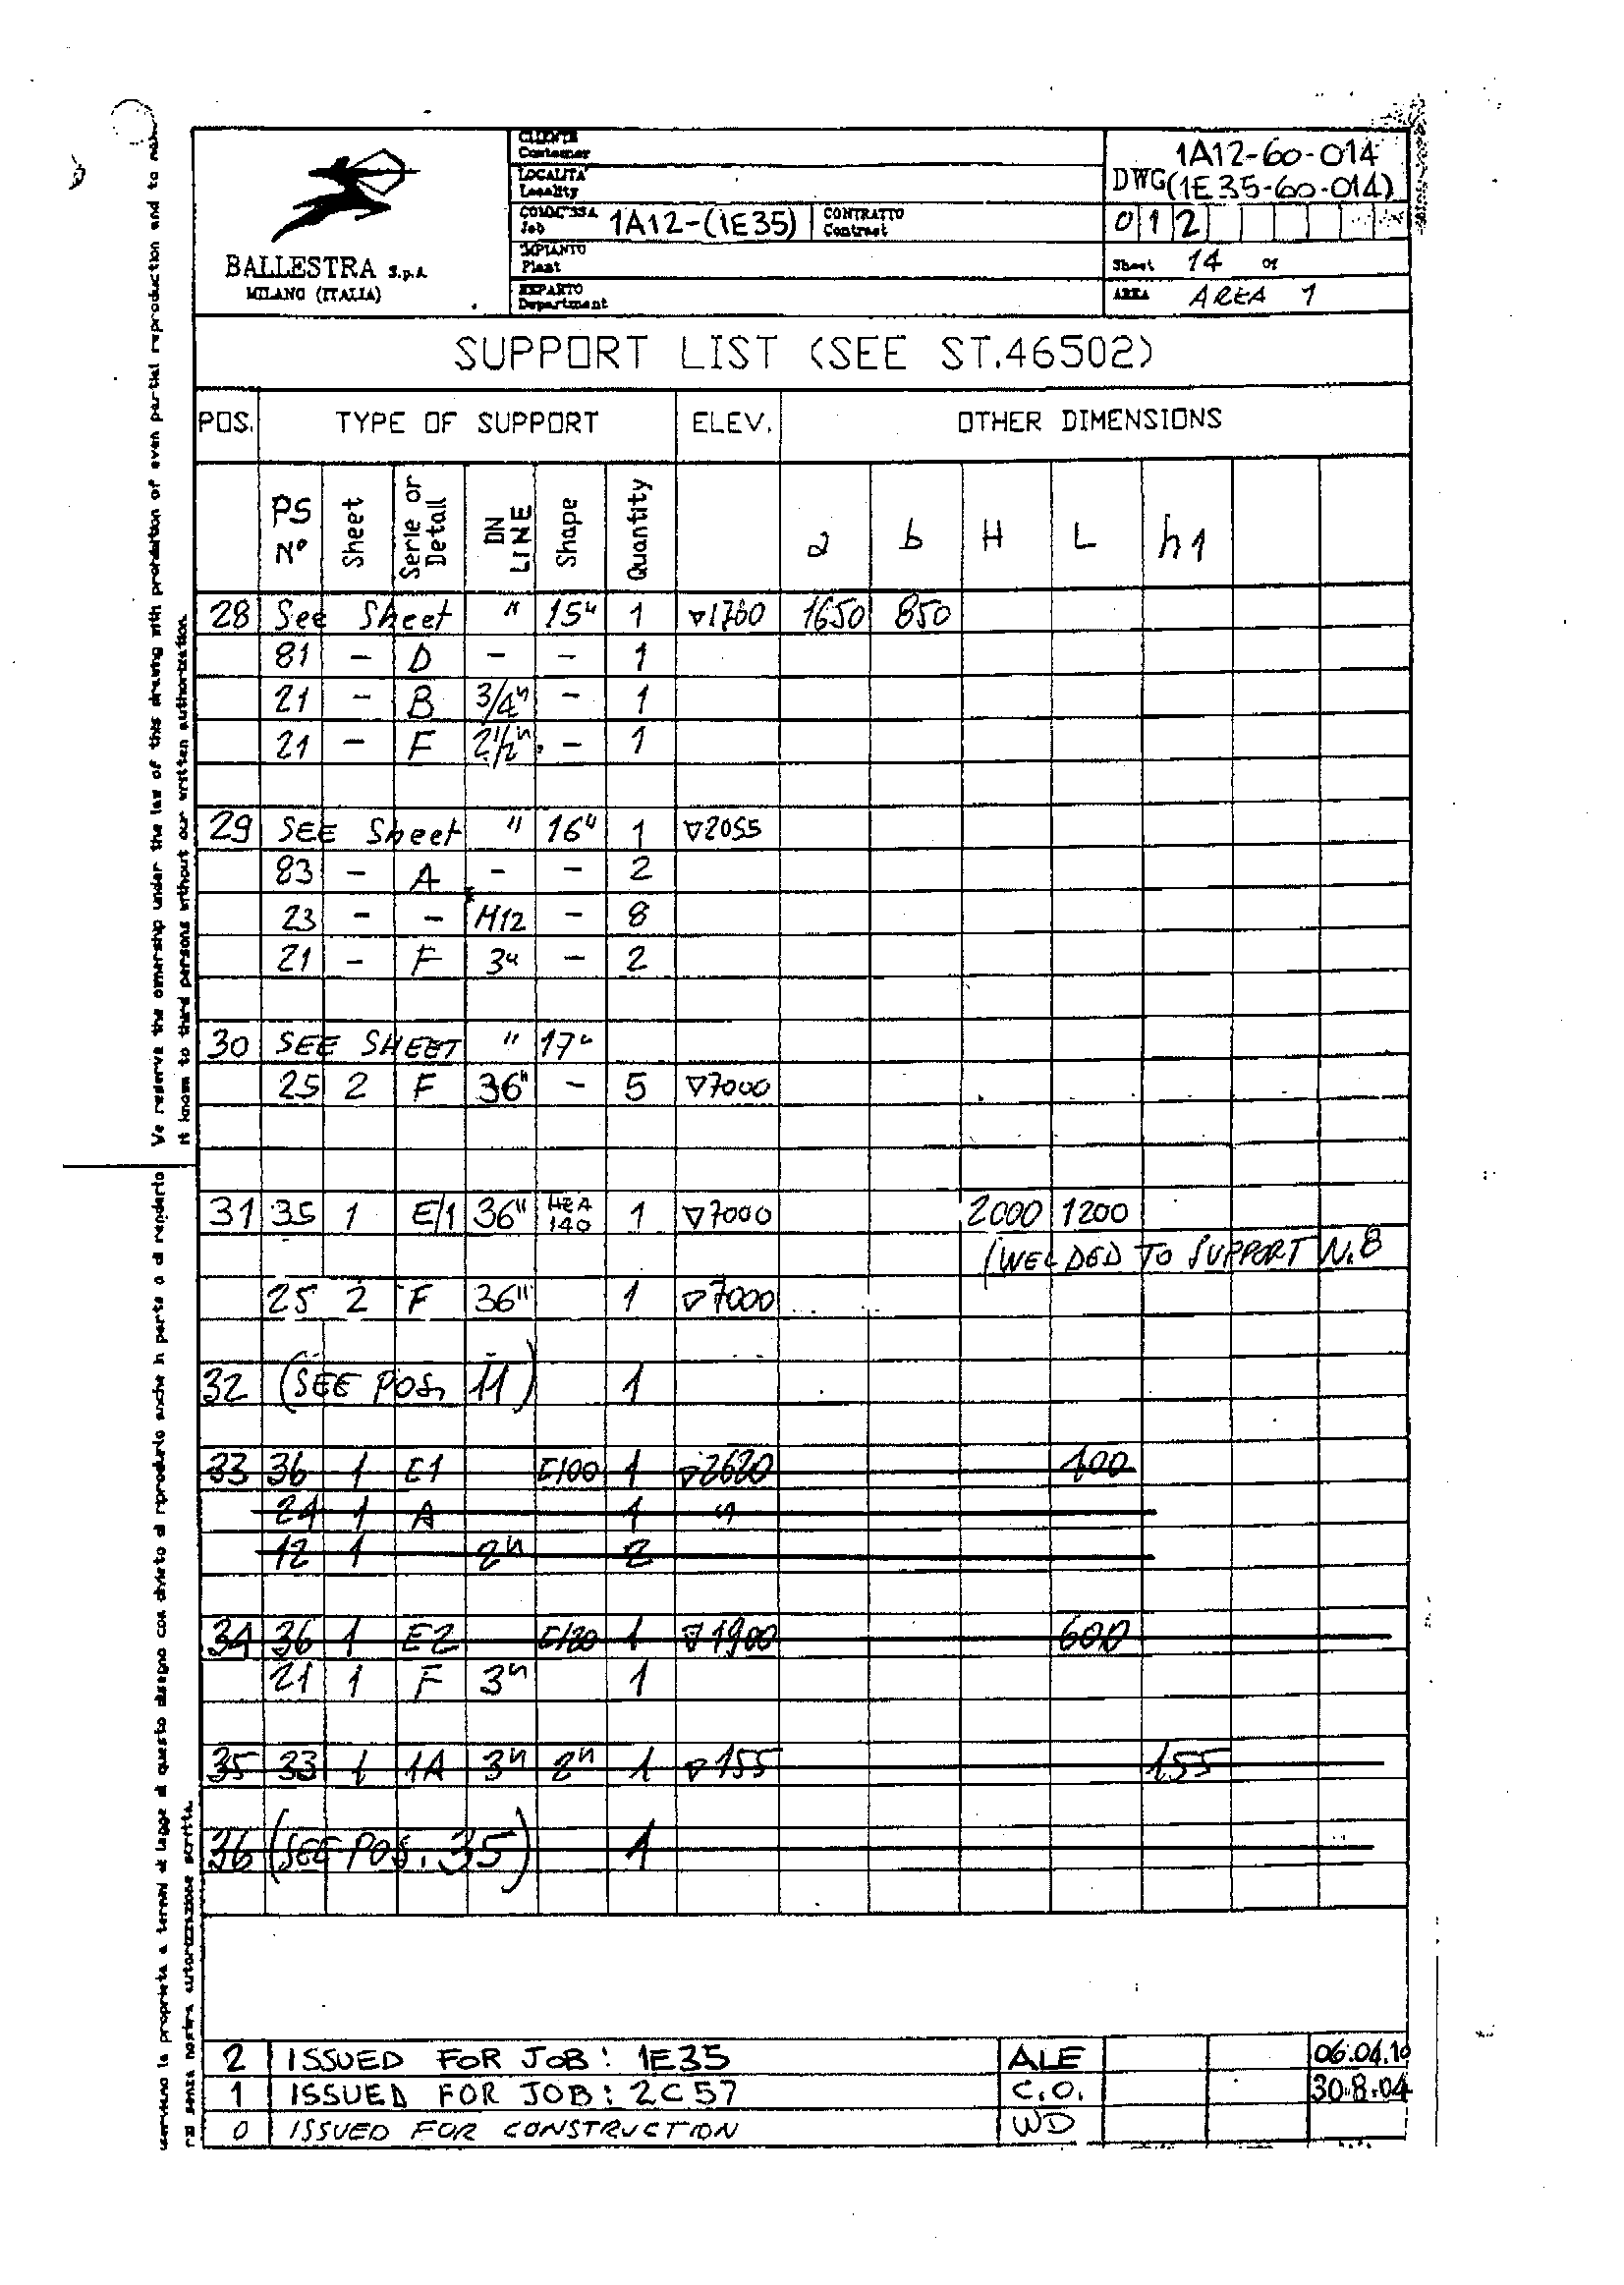 CLIENTE
Customer
LOCALITA'
Locality
COMMESSA
Job
1A12-(1E35)
CONTRATTO
Contract
IMPIANTO
Plant
REPARTO
Department
BALLESTRA S.p.A.
MILANO (ITALIA)
1A12-60-014
DWG(1E35-60-014)
0 1 2
Sheet 14 of
AREA AREA 1
SUPPORT LIST (SEE ST.46502)
POS. TYPE OF SUPPORT ELEV. OTHER DIMENSIONS
PS N° Sheet Serie or Detall DN LINE Shape Quantity a b H L h1
28 See Sheet " 15" 1 ▽1760 1650 850
81 - D - - 1
21 - B 3/4" - 1
21 - F 2 1/2" - 1
29 SEE Sheet " 16" 1 ▽2055
83 - A - - 2
23 - - M12 - 8
21 - F 3" - 2
30 SEE SHEET " 17"
25 2 F 36" - 5 ▽7000
31 35 1 E/1 36" HEA 140 1 ▽7000 2000 1200
(WELDED TO SUPPORT N.8
25 2 F 36" 1 ▽7000
32 (SEE POS. 11) 1
33 36 1 E1 E100 1 ▽2620 100
24 1 A 1 "
12 1 2" 2
34 36 1 E2 E120 1 ▽1900 600
21 1 F 3" 1
35 33 1 1A 3" 2" 1 ▽155 155
36 (SEE POS. 35) 1
2 ISSUED FOR JOB: 1E35 ALE 06.04.10
1 ISSUED FOR JOB: 2C57 C.O. 30.8.04
0 ISSUED FOR CONSTRUCTION WD
We reserve the ownership under the law of this drawing with prohibition of even partial reproduction and to make
it known to third persons without our written authorization.
la proprieta a termini di legge di questo disegno con divieto di riprodurlo anche in parte o di renderlo
senza nostra autorizzazione scritta.